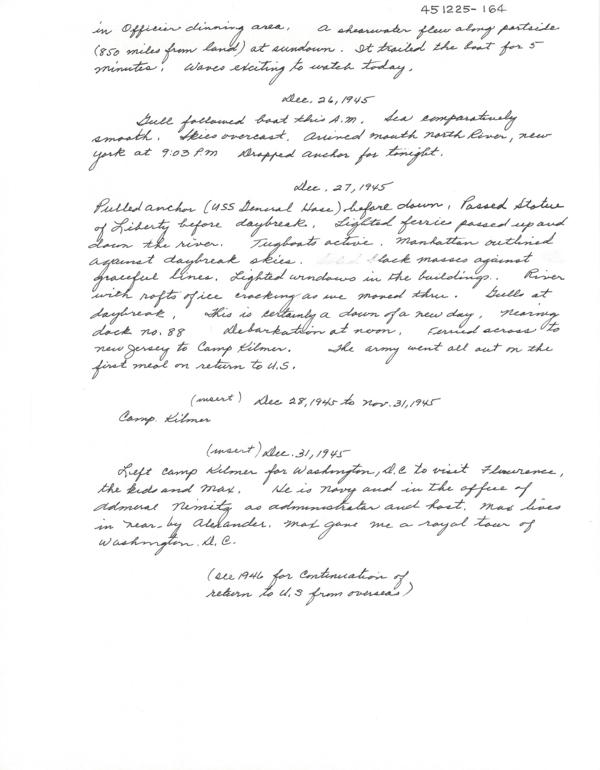 451225-164
in Officier dinning area. A shearwater flew along portside
(850 miles from land) at sundown. It trailed the boat for 5
minutes. Waves exciting to watch today.
Dec. 26, 1945
Gull followed boat this A.M. Sea comparatively
smooth. Skies overcast. Arrived mouth North River, new
york at 9:03 PM Dropped anchor for tonight.
Dec. 27, 1945
Pulled anchor (USS General Hase) before dawn. Passed Statue
of Liberty before daybreak. Lighted ferries passed up and
down the river. Tugboats active. Manhattan outlined
against daybreak skies. black masses against
graceful lines. Lighted windows in the buildings. River
with rafts of ice cracking as we moved thru. Gulls at
daybreak. This is certainly a dawn of a new day. nearing
dock no. 88 Debarkation at noon. Ferried across to
new Jersey to Camp Kilmer. The army went all out on the
first meal on return to U.S.
(insert) Dec 28, 1945 to Nov. 31, 1945
Camp. Kilmer
(insert) Dec. 31, 1945
Left Camp Kilmer for Washington, D.C to visit Flourence,
the kids and Max. He is Navy and in the office of
admeral Nimitz as administrator and host. Max lives
in near-by Alexander. Max gave me a royal tour of
Washington. D.C.
(see 1946 for Continuation of
return to U.S from overseas)